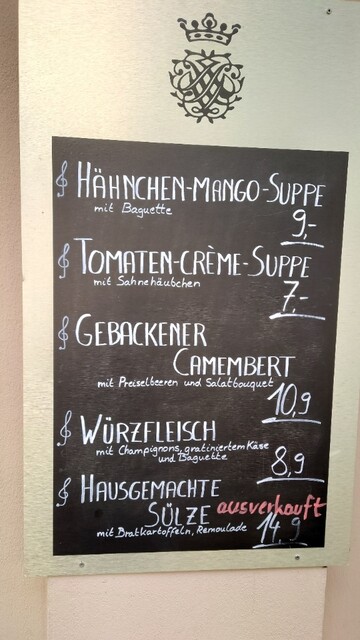 HÄHNCHEN-MANGO-SUPPE
mit Baguette
9,-
TOMATEN-CRÈME-SUPPE
mit Sahnehäubchen
7,-
GEBACKENER
CAMEMBERT
mit Preiselbeeren und Salatbouquet
10,9
WÜRZFLEISCH
mit Champignons, gratiniertem Käse
und Baguette
8,9
HAUSGEMACHTE
SÜLZE ausverkauft
mit Bratkartoffeln, Remoulade 14,9